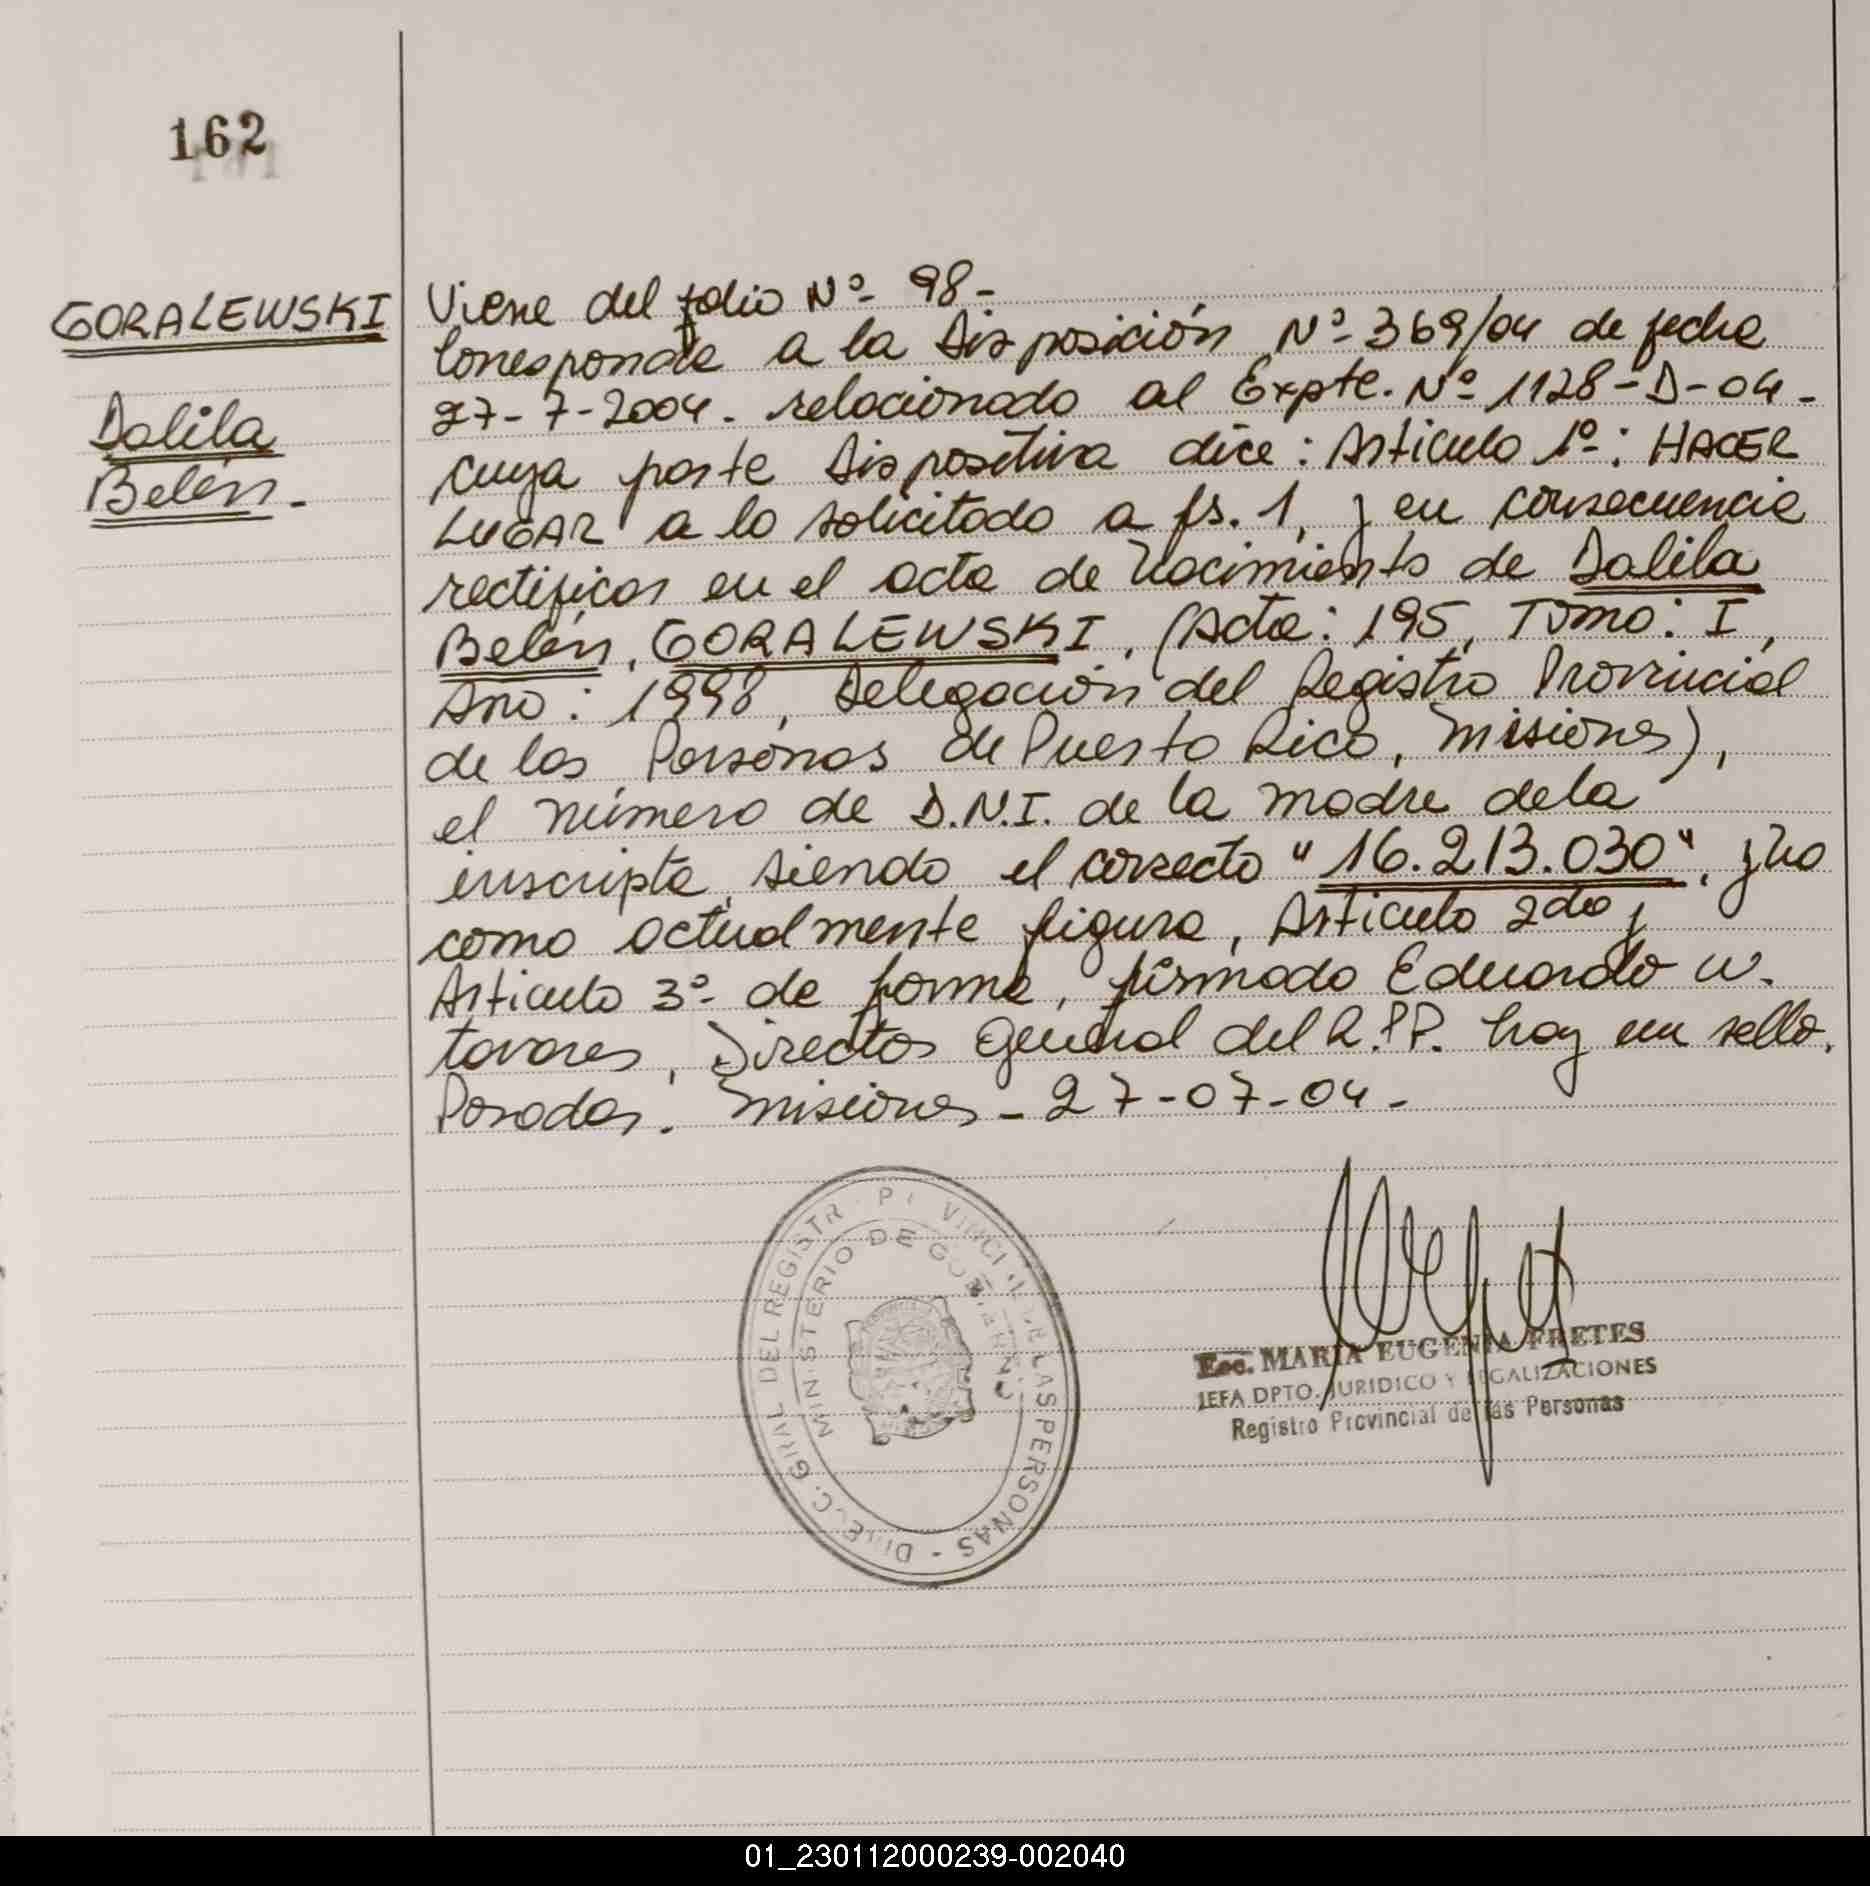 162
GORALEWSKI
Dalila
Belén.-
Viene del folio Nº 98-
Corresponde a la Disposición Nº 369/04 de fecha
27-7-2004. relacionado al Expte. Nº 1128-D-04-
cuya parte dispositiva dice: Articulo 1º: HACER
LUGAR a lo solicitado a fs. 1, y en consecuencia
rectificar en el acta de Nacimiento de Dalila
Belén, GORALEWSKI, (Acta: 195, Tomo: I,
Año: 1998, Delegación del Registro Provincial
de las Personas de Puerto Rico, Misiones),
el número de D.N.I. de la madre de la
inscripta, siendo el correcto "16.213.030", y no
como actualmente figura, Articulo 2do y
Articulo 3º de forma, firmado Eduardo W.
Tavares, Director General del R.P.P. hay un sello.
Posadas. Misiones - 27-07-04-
DIREC. GRAL DEL REGISTR PROVINCIAL DE LAS PERSONAS -
MINISTERIO DE GOBIERNO
Esc. MARIA EUGENIA FRETES
JEFA DPTO. JURIDICO Y LEGALIZACIONES
Registro Provincial de las Personas
01_230112000239-002040